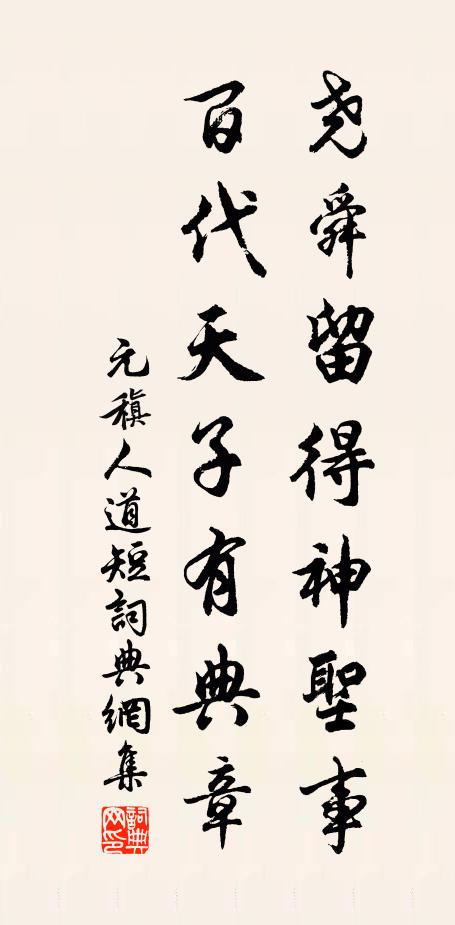 尧舜留得神聖事
百代天子有典章
元稹人道短詞典網集
詞典網印